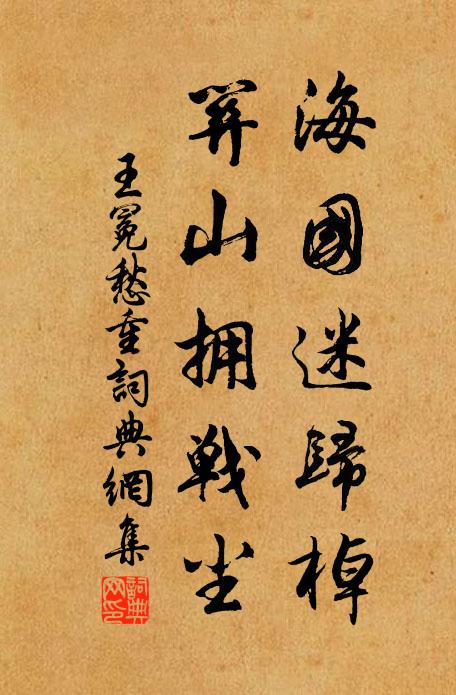 海國迷歸棹
關山拥戰尘
王冕愁重詞典網集
詞典網印